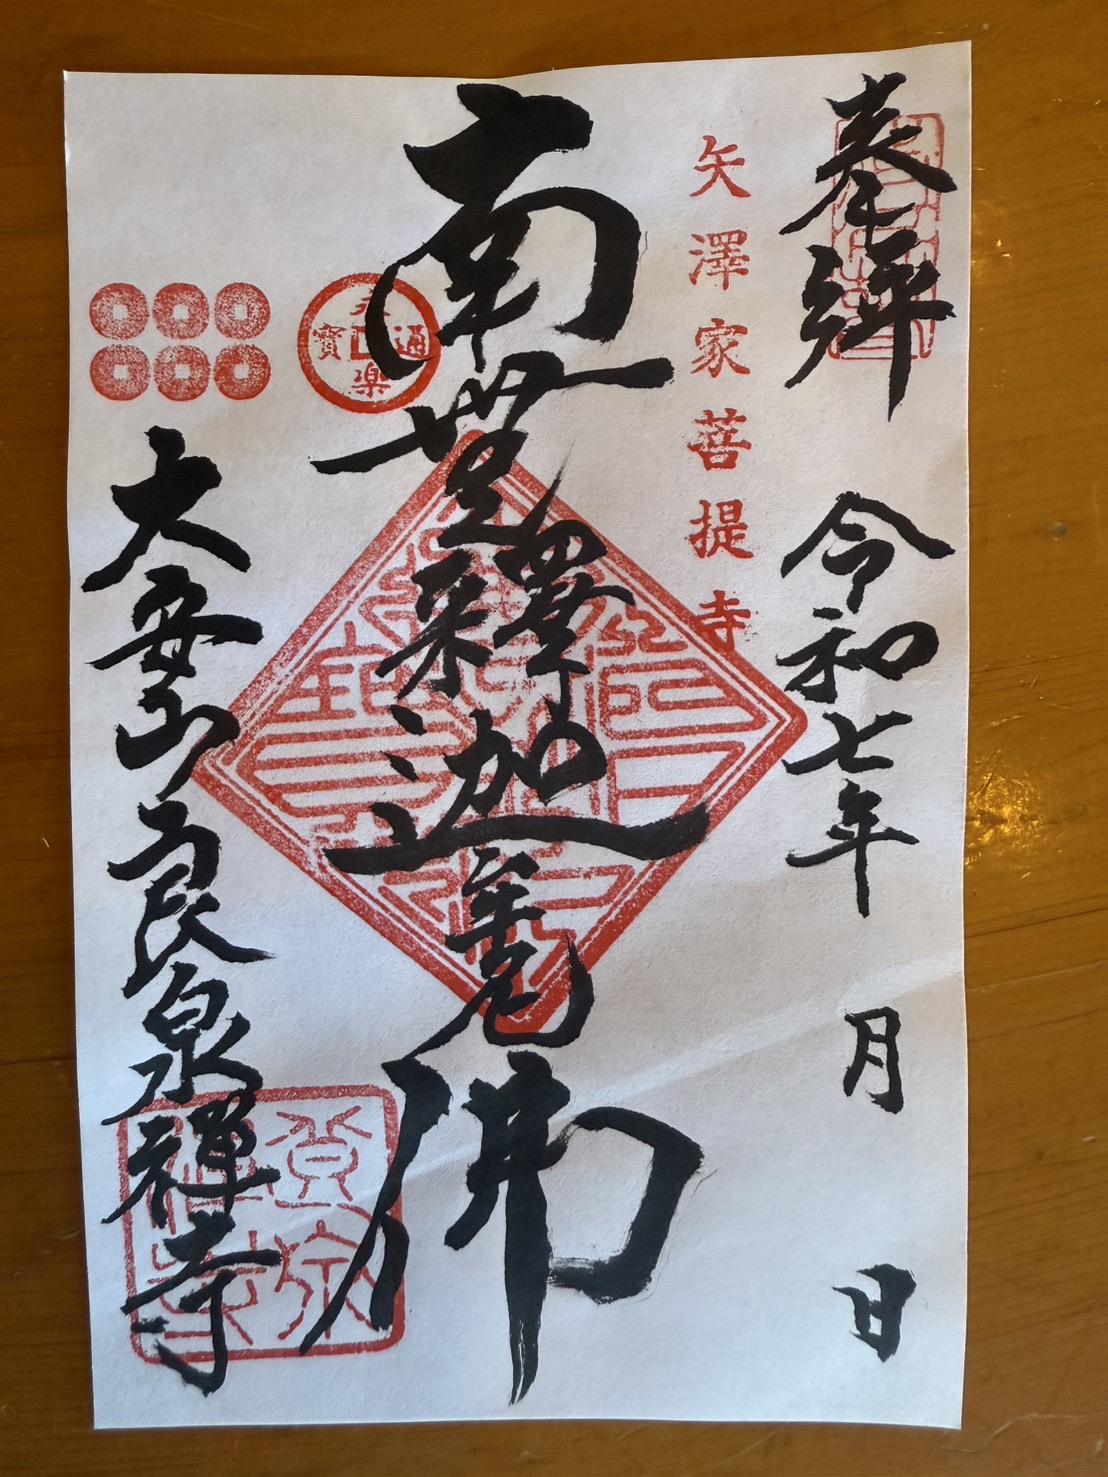 奉拜
令和七年 月 日
矢澤家菩提寺
南無釋迦牟尼佛
永楽通寶
大安山良泉禪寺
良泉禪寺